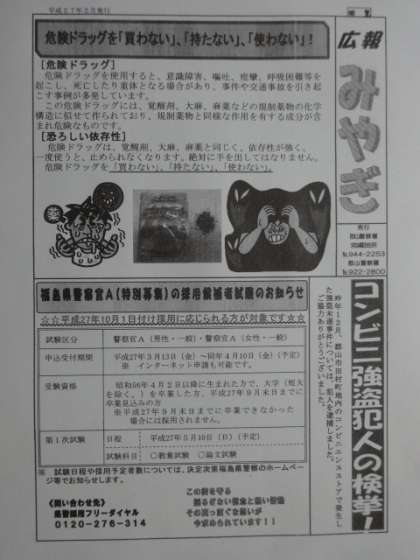 平成27年2月発行
危険ドラッグを「買わない」、「持たない」、「使わない」!
[危険ドラッグ]
危険ドラッグを使用すると、意識障害、嘔吐、痙攣、呼吸困難等を
起こし、死亡したり重体となる場合があり、事件や交通事故を引き起
こす事例が発生しています。
この危険ドラッグには、覚醒剤、大麻、麻薬などの規制薬物の化学
構造に似せて作られており、規制薬物と同様な作用を有する成分が含
まれ危険なものです。
[恐ろしい依存性]
危険ドラッグは、覚醒剤、大麻、麻薬と同じく、依存性が強く、
一度使うと、止められなくなります。絶対に手を出してはなりません。
危険ドラッグを「買わない」、「持たない」、「使わない」。
薬
広報
みやぎ
発行
郡山警察署
宮城駐在所
℡944-2253
郡山警察署
℡922-2800
コンビニ強盗犯人の検挙!
昨年12月、郡山市田村町地内のコンビニエンスストアで発生し
た強盗未遂事件については、犯人を逮捕しました。
ご協力ありがとうございました。
福島県警察官A(特別募集)の採用候補者試験のお知らせ
☆☆平成27年10月1日付け採用に応じられる方が対象です☆☆
試験区分 警察官A(男性・一般)・警察官A(女性・一般)
申込受付期間 平成27年3月13日(金)~同年4月10日(金)(予定)
※ インターネット申請も可能です。
受験資格 昭和56年4月2日以降に生まれた方で、大学(短大
を除く。)を卒業した方、平成27年9月末日までに
卒業見込みの方
※平成27年9月末日までに卒業できなかった
場合には採用されません。
第1次試験 日程 平成27年5月10日(日)(予定)
試験科目 ○教養試験 ○論文試験
※ 試験日程や採用予定者数については、決定次第福島県警察のホームペ
ージ等でお知らせします。
《問い合わせ先》
県警採用フリーダイヤル
0120-276-314
この街を守る
揺るぎない勇気と強い信念
その真っ直ぐな想いが
今求められています!!